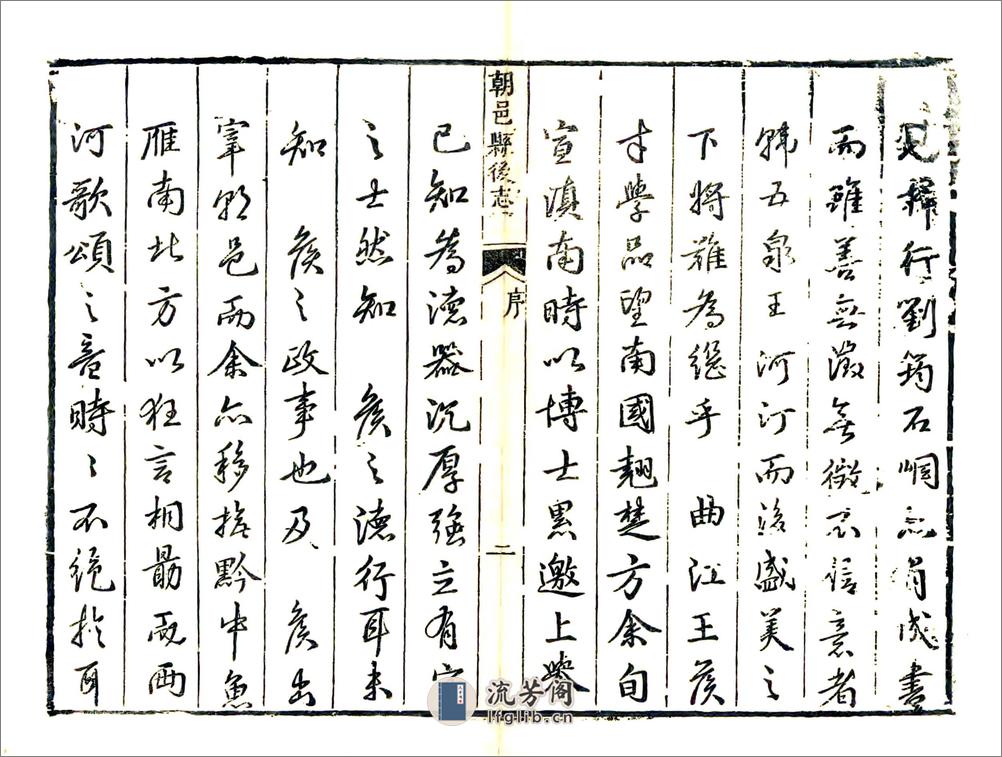 行劉筠石峒
而雖善無徵無徵不信意者
韓五泉王河汀而後盛美之
下將難為繼乎 曲江王侯
才學品望南國翹楚方余旬
宣滇南時以博士黑邀上譽
朝邑縣後志 序 二
已知為德器沉厚強立有
之士然知 侯之德行耳未
知 侯之政事也及 侯出
宰朝邑而余亦移撫黔中魚
雁南北方以狂言相勗而西
河歌頌之音時〻不絕於耳
流芳阁
lfglib.cn